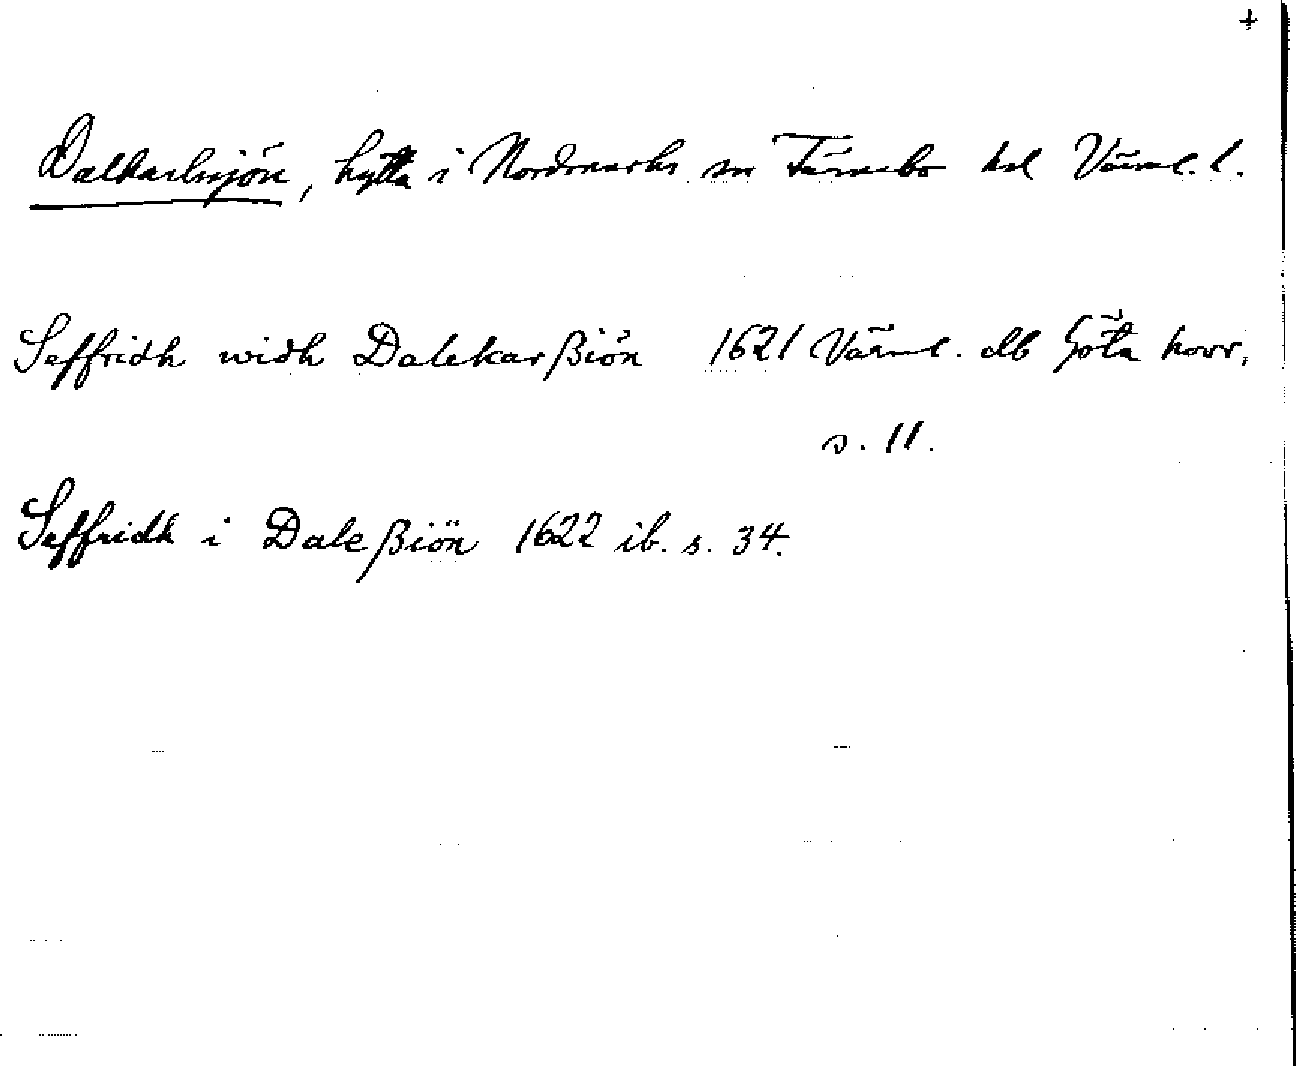 +
Dalkarlssjön, hytta i Nordmarks sn Färnebo hd Värml. l.
Seffridh widh Dalekarßiön 1621 Värml. db Göta hovr.
s. 11.
Seffridh i Daleßiön 1622 ib. s. 34.